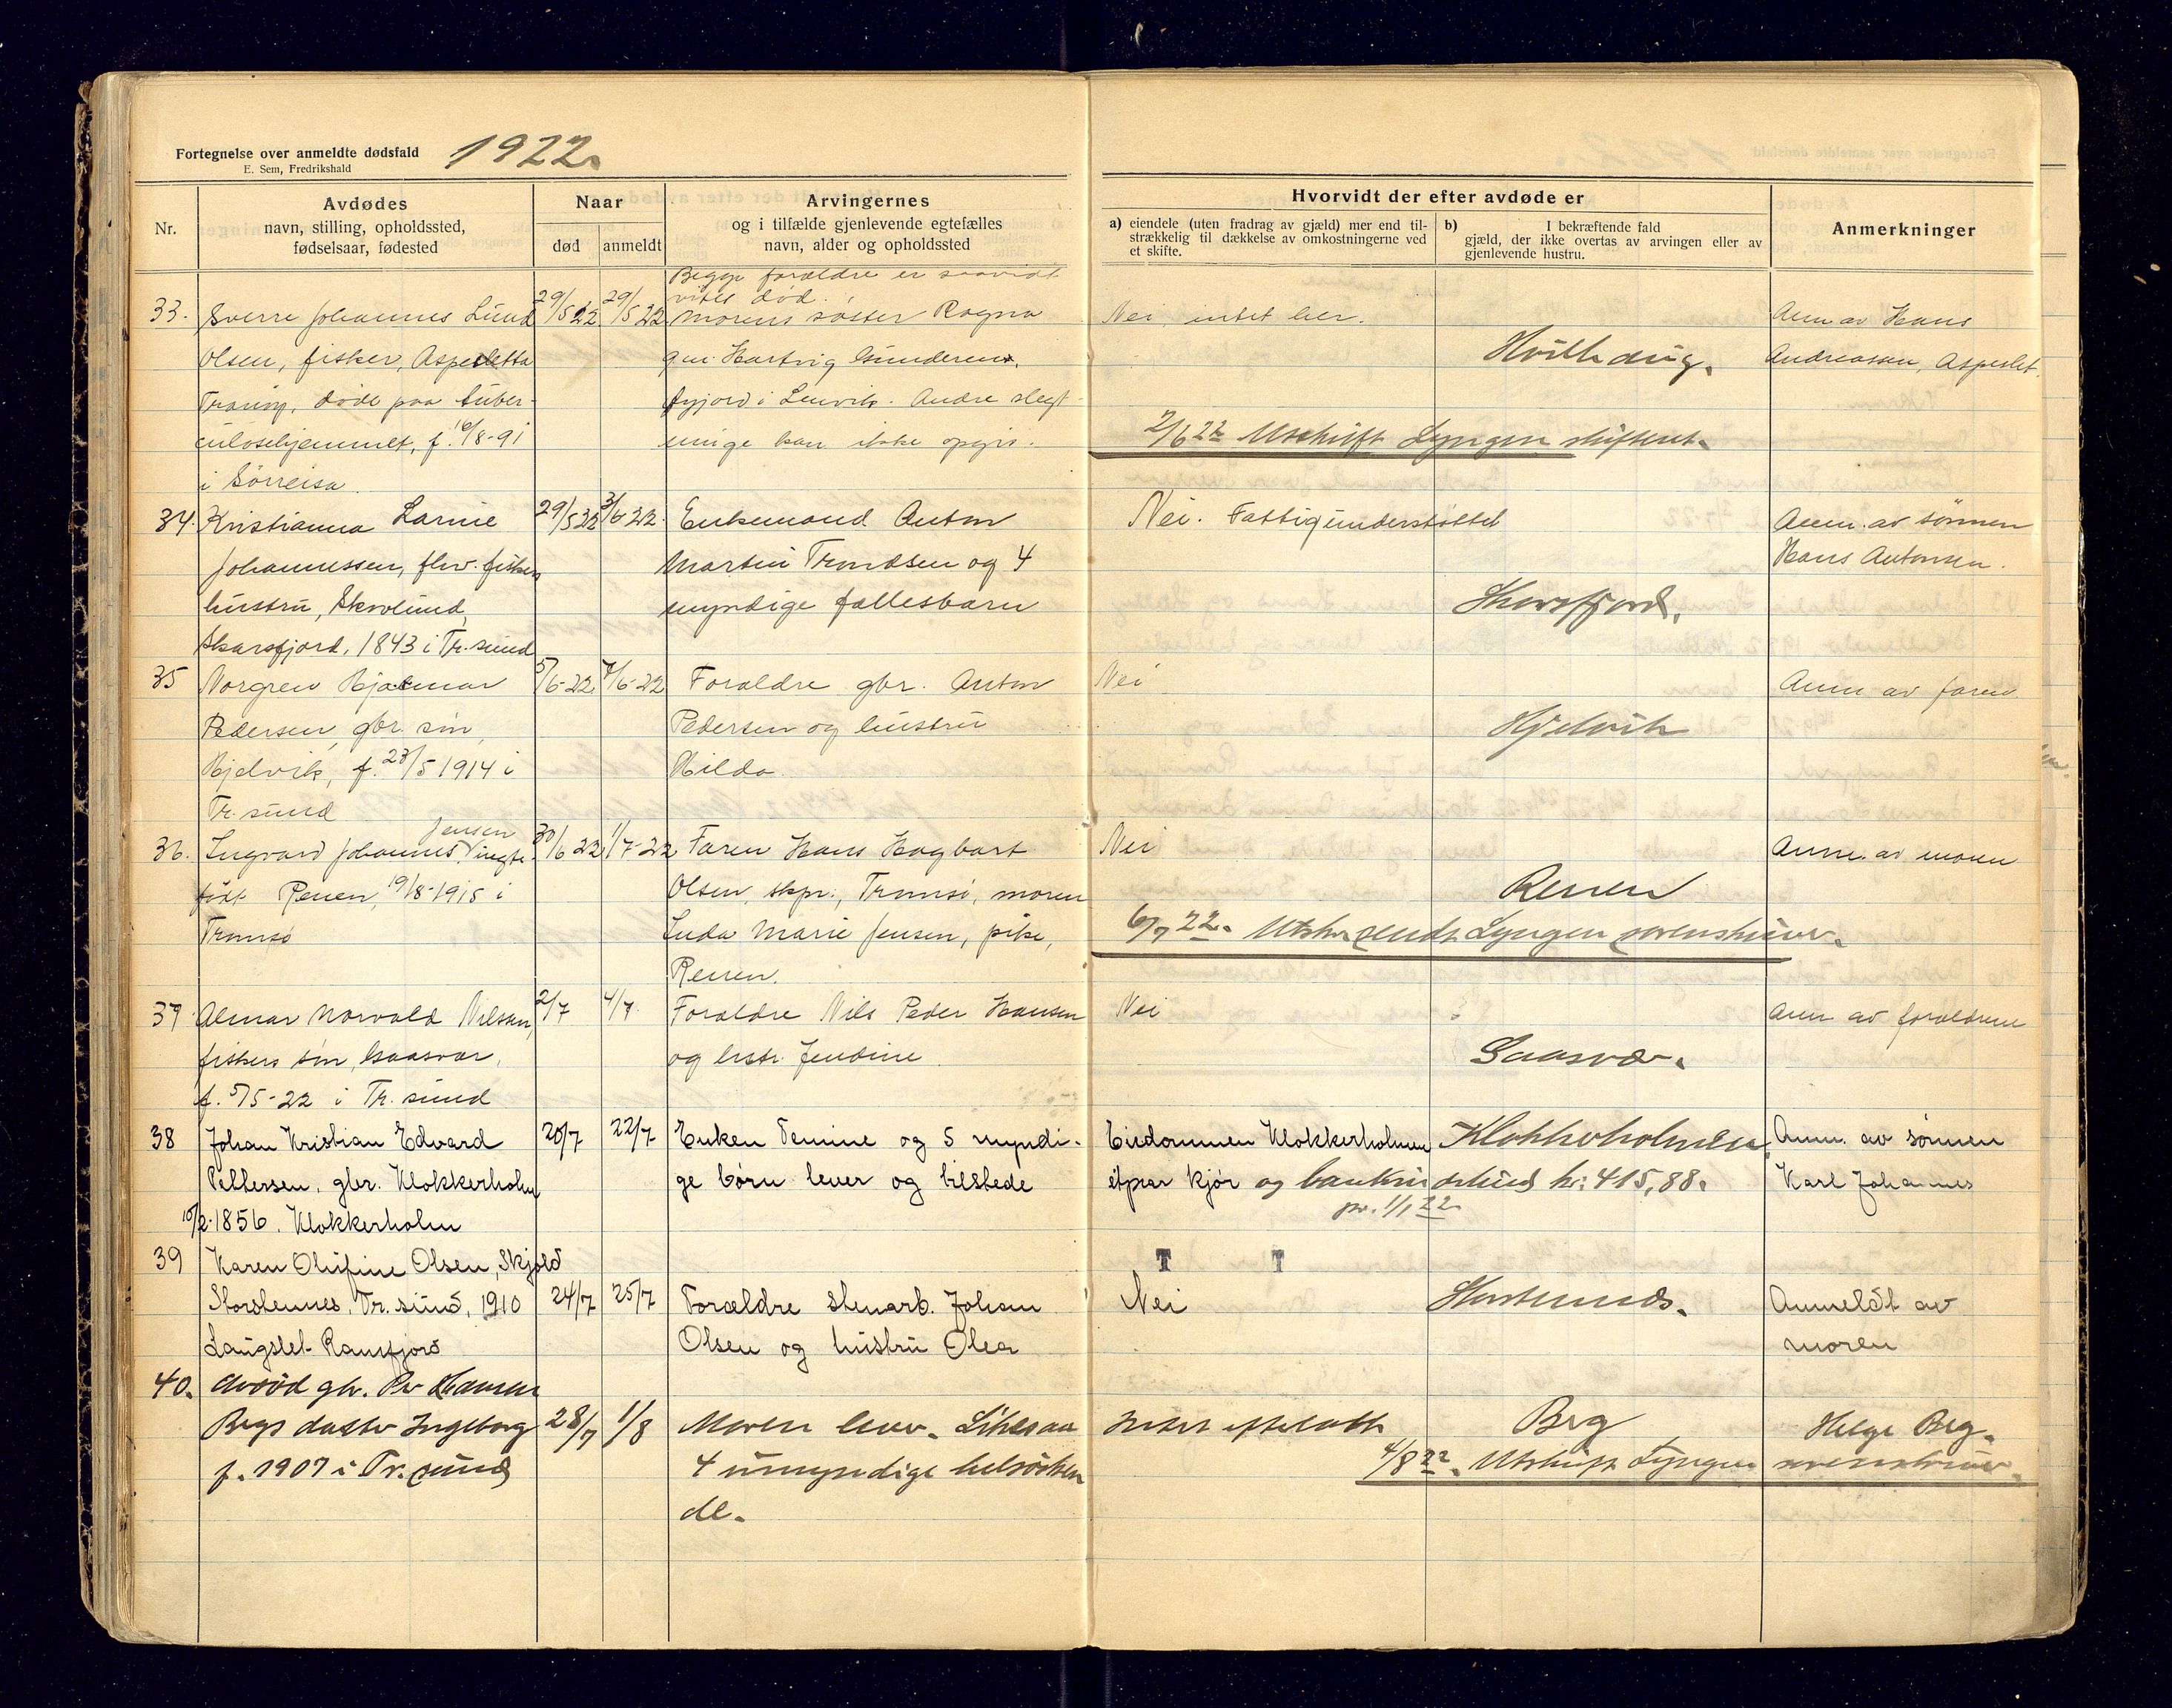 Fortegnelse over anmeldte dødsfald
E. Sem, Fredrikshald
1922.
Nr.
Avdødes
navn, stilling, opholdssted,
fødselsaar, fødested
Naar
død
anmeldt
Arvingernes
og i tilfælde gjenlevende egtefælles
navn, alder og opholdssted
Hvorvidt der efter avdøde er
a) eiendele (uten fradrag av gjæld) mer end til-
strækkelig til dækkelse av omkostningerne ved
et skifte.
b) I bekræftende fald
gjæld, der ikke overtas av arvingen eller av
gjenlevende hustru.
Anmerkninger
33. Sverre Johannes Lund
Olsen, fisker, Aspesletta
Tranøy, døde paa tuber-
culosehjemmet, f. 16/8-91
i Sørreisa.
29/5 22
29/5 22
Begge forældre er saavidt
vites død.
Morens søster Ragna
gm. Hartvig Gundersen,
fyjord i Lenvik. Andre slegt-
ninge kan ikke opgis.
Nei, intet her.
2/6 22 Utskrift Lyngen skifteret.
Anm av Hans
Andreassen, Aspeslet.
34. Kristianna Larnie
Johannessen, fhv. fiskers
hustru, Skovlund,
Skarsfjord, 1843 i Tr.sund
29/5 22
3/6-22.
Enkemand Anton
Martin Trondsen og 4
myndige fællesbarn
Nei. Fattigunderstøttet
Skarsfjord.
Anm. av sønnen
Hans Antonsen.
35 Norgren Hjalmar
Pedersen, gbr. søn,
Hjelvik, f. 23/5 1914 i
Tr.sund
5/6-22
7/6-22
Forældre gbr. Anton
Pedersen og hustru
Hilda
Nei
Hjelvik
Anm av faren
36. Ingvard Johannes Jensen, uegte
født Renen, 19/8-1915 i
Tromsø
30/6 22
1/7-22
Faren Hans Hagbart
Olsen, skpr., Tromsø, moren
Inda Marie Jensen, pike,
Renen.
Nei
Renen
6/7 22. Utskr. sendt Lyngen sorenskriver.
Anm. av moren
37 Almar Norvald Nilsen,
fiskers søn, Gaasvær,
f. 5/5-22 i Tr.sund
2/7
4/7.
Forældre Nils Peder Hansen
og hstr. Jendine
Nei
Gaasvær.
Anm av forældrene
38 Johan Kristian Edvard
Pettersen, gbr. Klokkerholm
10/2-1856. Klokkerholm
20/7
22/7
Enken Pernine og 5 myndi-
ge børn lever og tilstede
Eiedommen Klokkerholmen
etpar kjør og bankindskud kr. 415,88.
pr. 1/1 22
Klokkerholmen
Anm. av sønnen
Karl Johannes
39 Karen Olufine Olsen, Skjold
Storstennes, Tr.sund, 1910
Langslet Ramfjord
24/7
25/7
Forældre stenarb. Johan
Olsen og hustru Olea
T T
Nei
Anmeldt av
moren
40. avdød gbr. Per Hansen
Bergs datter Ingeborg
f. 1907 i Tr.sund
28/7
1/8
Moren lever. Likesaa
4 umyndige helsøsken
de.
Intet efterlatt
Berg
4/8 22. Utskrift Lyngen sorenskriver.
Helge Berg.